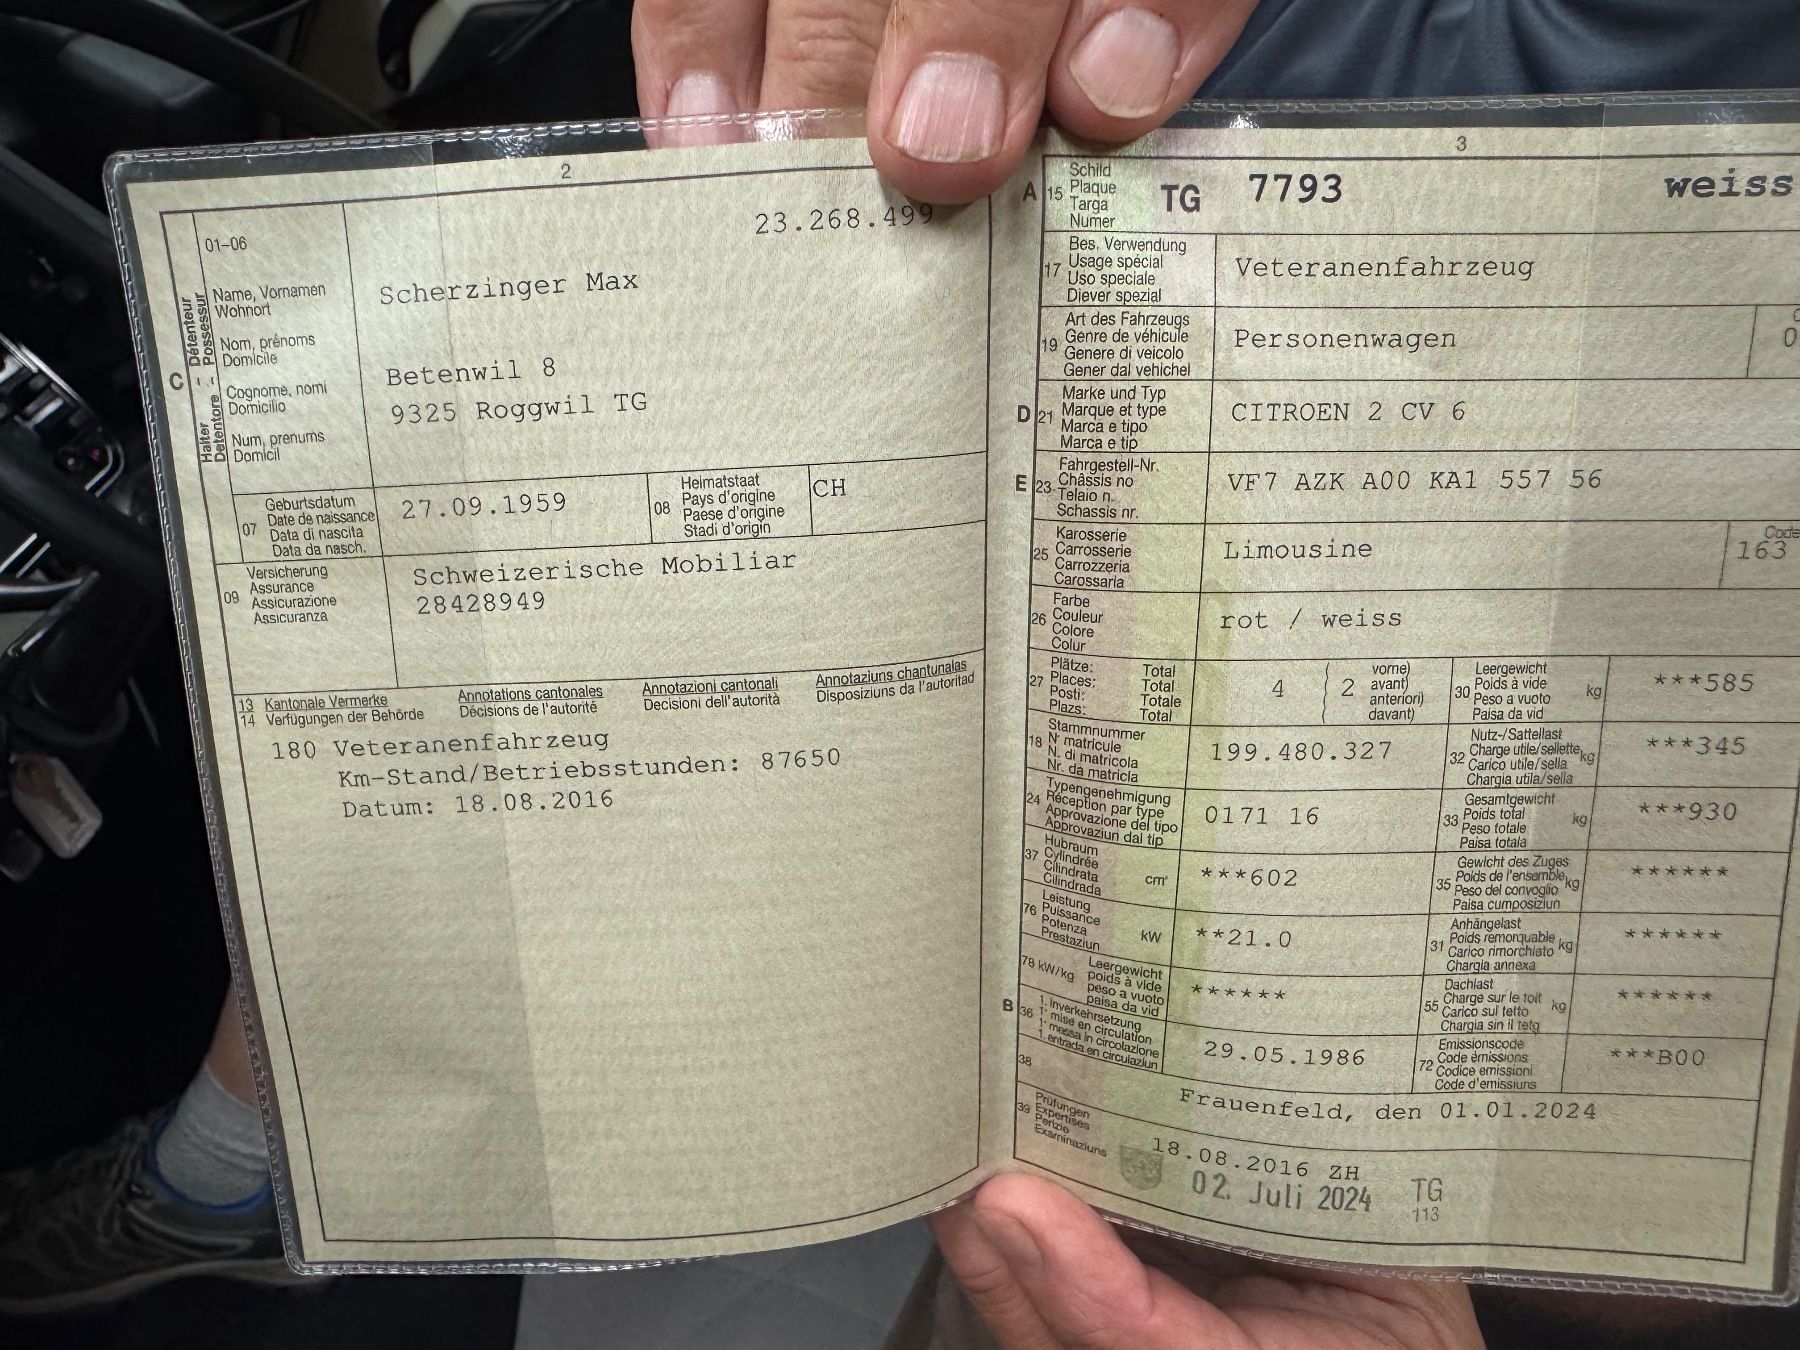 2
01-06
23.268.499
C
Halter - Détenteur
Detentore - Possessur
Name, Vornamen
Wohnort
Nom, prénoms
Domicile
Cognome, nomi
Domicilio
Num, prenums
Domicil
Scherzinger Max
Betenwil 8
9325 Roggwil TG
07
Geburtsdatum
Date de naissance
Data di nascita
Data da nasch.
27.09.1959
08
Heimatstaat
Pays d'origine
Paese d'origine
Stadi d'origin
CH
09
Versicherung
Assurance
Assicurazione
Assicuranza
Schweizerische Mobiliar
28428949
13 Kantonale Vermerke Annotations cantonales Annotazioni cantonali Annotaziuns chantunalas
14 Verfügungen der Behörde Décisions de l'autorité Decisioni dell'autorità Disposiziuns da l'autoritad
180 Veteranenfahrzeug
Km-Stand/Betriebsstunden: 87650
Datum: 18.08.2016
3
A
15
Schild
Plaque
Targa
Numer
TG 7793 weiss
17
Bes. Verwendung
Usage spécial
Uso speciale
Diever spezial
Veteranenfahrzeug
19
Art des Fahrzeugs
Genre de véhicule
Genere di veicolo
Gener dal vehichel
Personenwagen
0
D
21
Marke und Typ
Marque et type
Marca e tipo
Marca e tip
CITROEN 2 CV 6
E
23
Fahrgestell-Nr.
Châssis no
Telaio n.
Schassis nr.
VF7 AZK A00 KA1 557 56
25
Karosserie
Carrosserie
Carrozzeria
Carossaria
Limousine
Code
163
26
Farbe
Couleur
Colore
Colur
rot / weiss
27
Plätze: Total
Places: Total
Posti: Totale
Plazs: Total
4
2
vorne)
avant)
anteriori)
davant)
30
Leergewicht
Poids à vide
Peso a vuoto
Paisa da vid
kg
***585
18
Stammnummer
N° matricule
N. di matricola
Nr. da matricla
199.480.327
32
Nutz-/Sattellast
Charge utile/sellette
Carico utile/sella
Chargia utila/sella
kg
***345
24
Typengenehmigung
Réception par type
Approvazione del tipo
Approvaziun dal tip
0171 16
33
Gesamtgewicht
Poids total
Peso totale
Paisa totala
kg
***930
37
Hubraum
Cylindrée
Cilindrata
Cilindrada
cm³
***602
35
Gewicht des Zuges
Poids de l'ensemble
Peso del convoglio
Paisa cumposiziun
kg
******
76
Leistung
Puissance
Potenza
Prestaziun
kW
**21.0
31
Anhängelast
Poids remorquable
Carico rimorchiato
Chargia annexa
kg
******
78 kW/kg
Leergewicht
poids à vide
peso a vuoto
paisa da vid
******
55
Dachlast
Charge sur le toit
Carico sul tetto
Chargia sin il tetg
kg
******
B
36
1. Inverkehrsetzung
1ʳᵉ mise en circulation
1ª messa in circolazione
1. entrada en circulaziun
29.05.1986
72
Emissionscode
Code émissions
Codice emissioni
Code d'emissiuns
***B00
38
Frauenfeld, den 01.01.2024
39
Prüfungen
Expertises
Perizie
Examinaziuns
18.08.2016 ZH
02. Juli 2024 TG
113